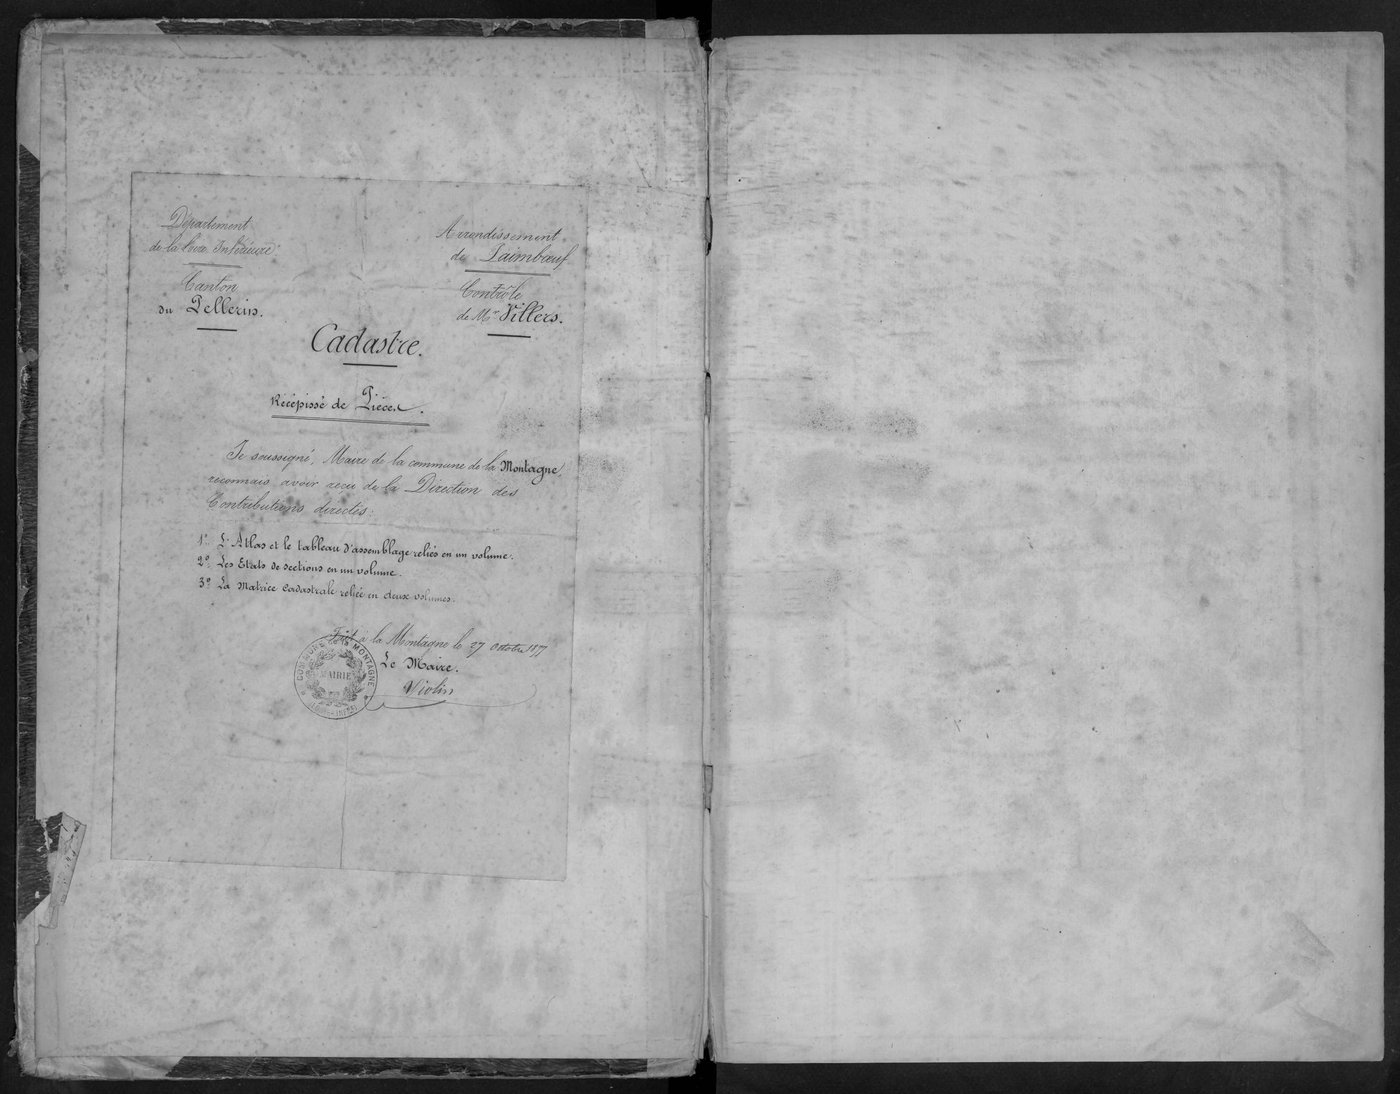 Département
de la Loire Inférieure
Canton
du Pellerin.
Arrondissement
de Paimbœuf
Contrôle
de Mr Villers.
Cadastre.
Récépissé de Pièces.
Je soussigné, Maire de la commune de la Montagne,
reconnais avoir reçu de la Direction des
Contributions directes:
1º L'Atlas et le tableau d'assemblage reliés en un volume.
2º Les Etats de sections en un volume.
3º La Matrice Cadastrale reliée en deux volumes.
Fait à la Montagne le 27 Octobre 1877
Le Maire.
Violin
COMMUNE DE LA MONTAGNE
MAIRIE
(LOIRE-INFRE)